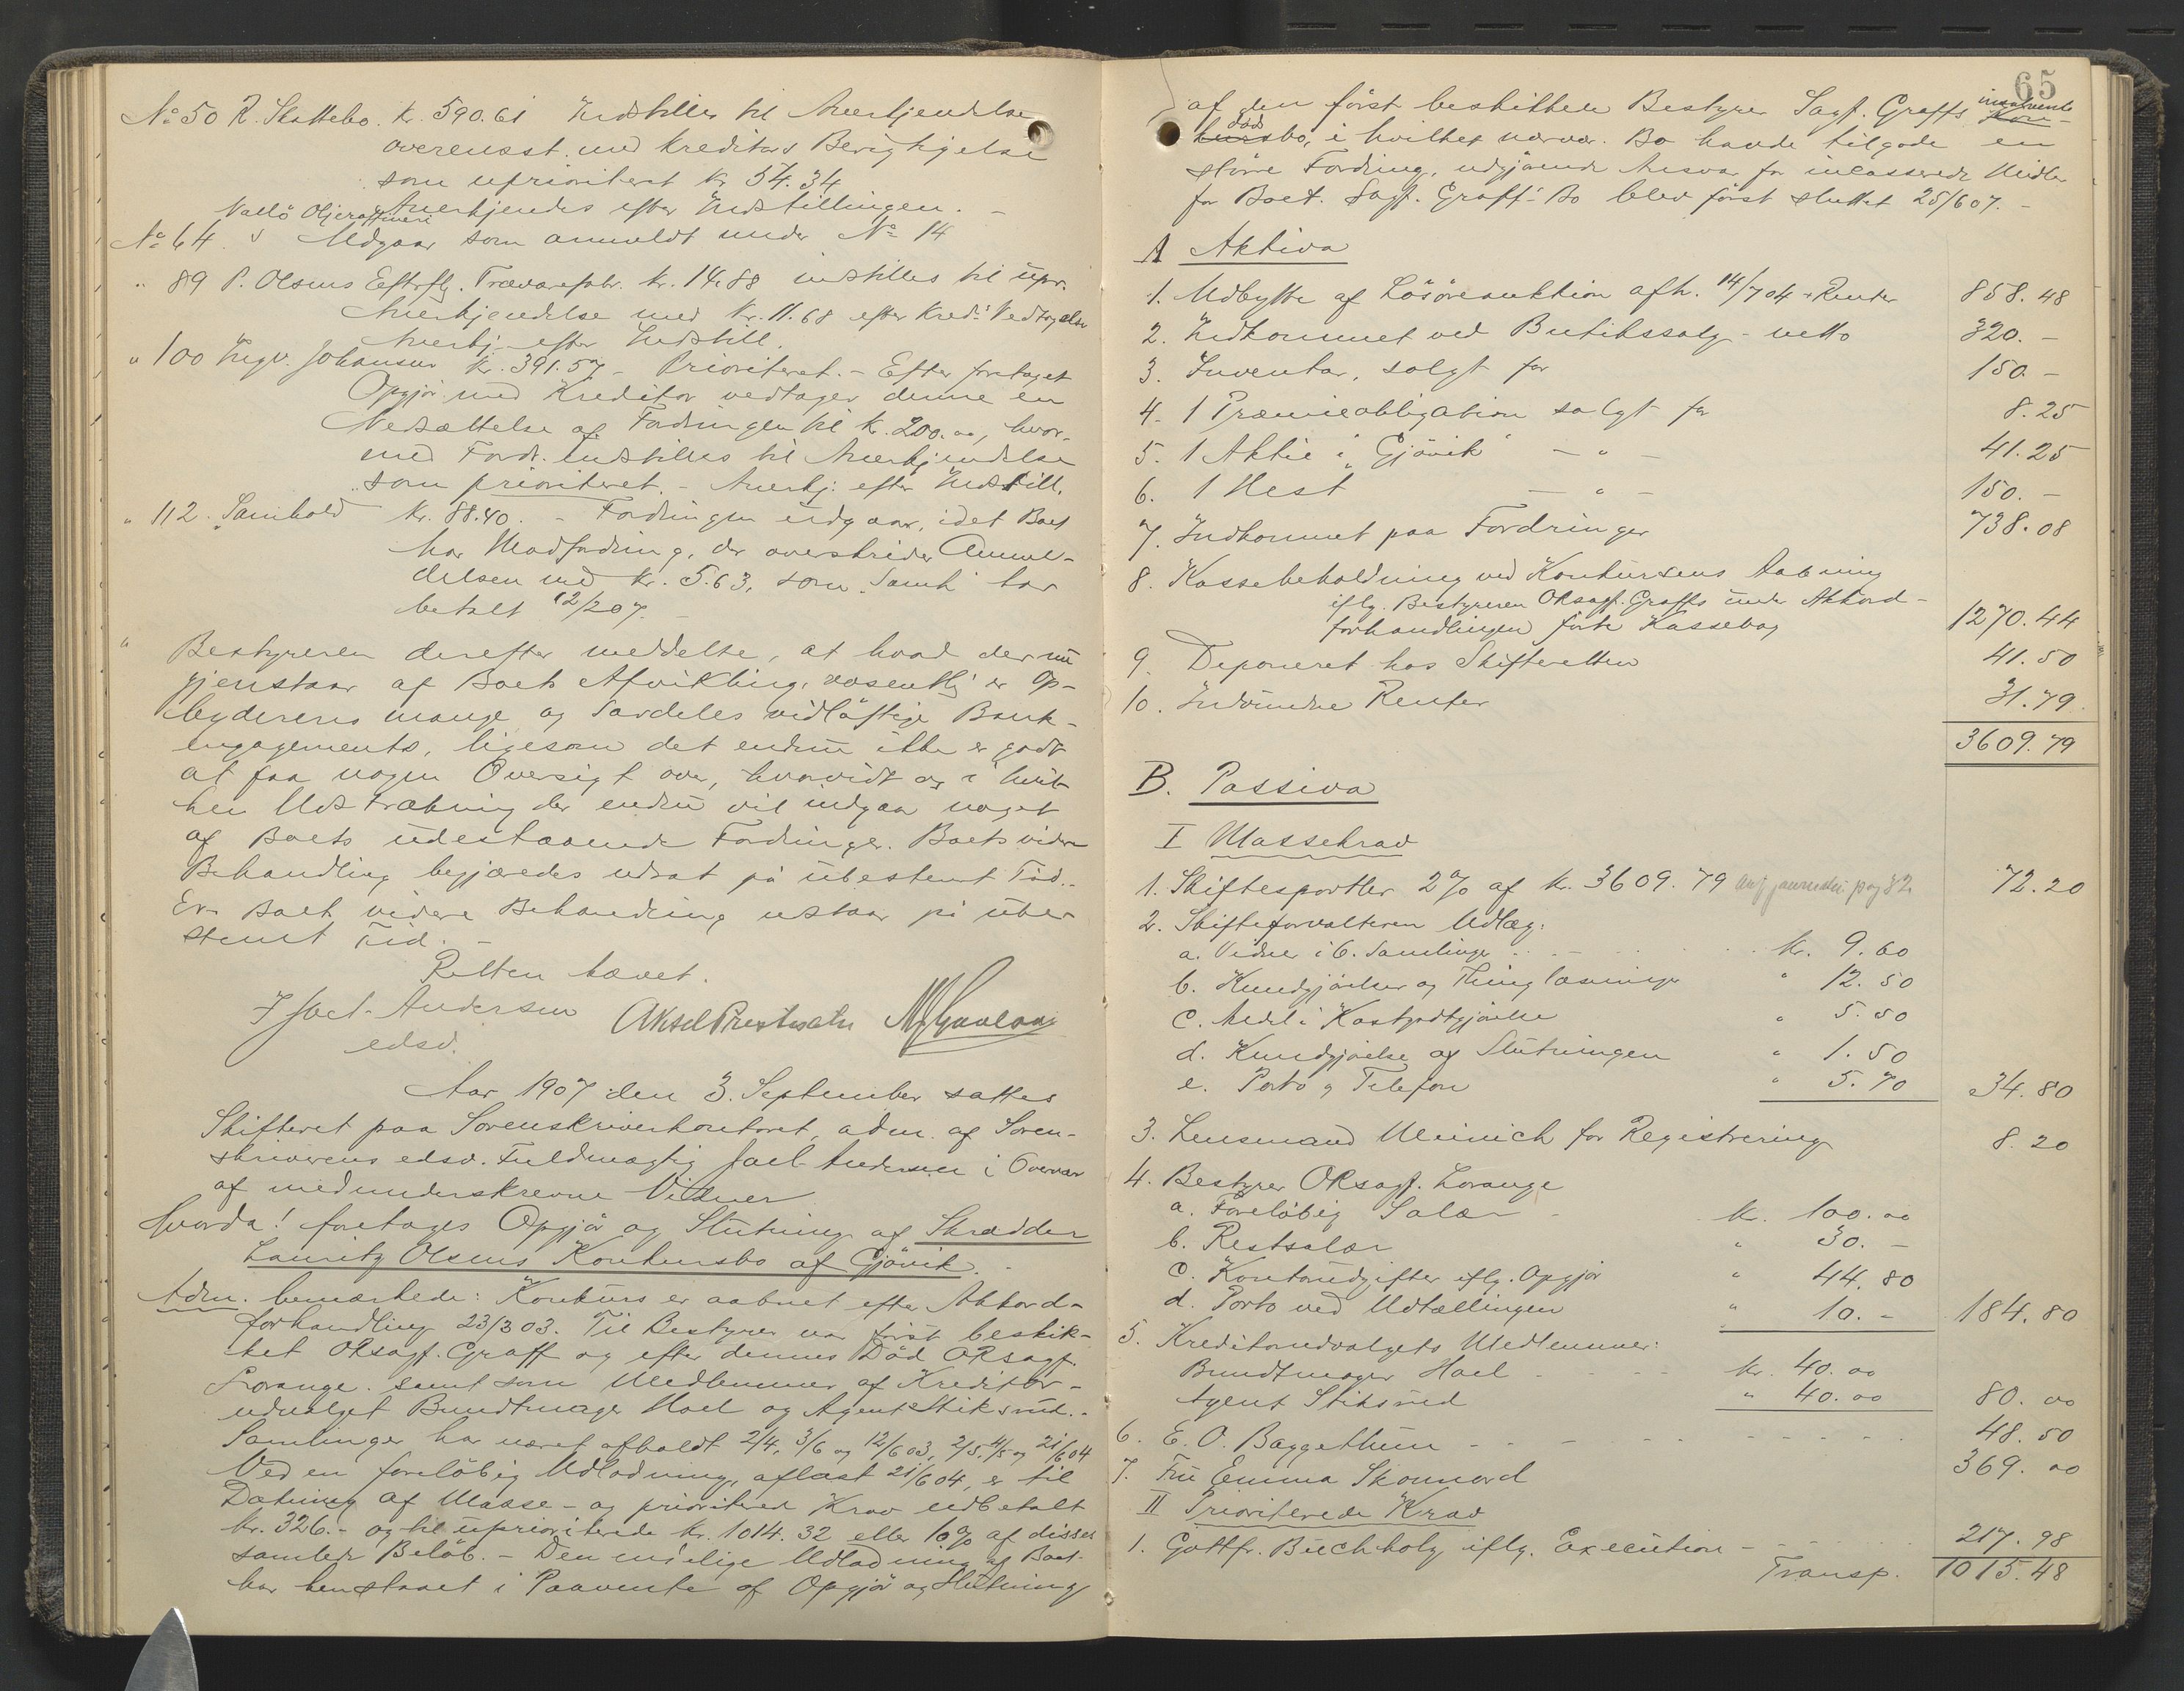 No 50 R. Skattebo. Kr. 590.61 Indstilles til Anerkjendelse
overensst. med Kreditors Berigtigelse
som uprioriteret kr 54.34
Anerkjendes efter Indstillingen. –
Vallö Oljeraffineri
No 64. Udgaar som anmeldt under No 14
" 89 P. Olsens Eftrflg. Trævarefabr. kr. 14.88 indstilles til upr.
Anerkjendelse med kr. 11.68 efter Kred.s Vedtagelse
Anerkj. efter Indstill.
" 100 Ingv. Johansen kr. 391.57 – Prioriteret. – Efter foretaget
Opgjör med Kreditor vedtager denne en
Nedsættelse af Fordringen til kr. 200.00, hvor-
med Fordr. indstilles til Anerkjendelse
som prioriteret. – Anerkj. efter Indstill.
" 112. "Samhold" Kr. 88.40. – Fordringen udgaar, idet Boet
har Modfordring, der overstiger Anmel-
delsen med kr. 5.63, som "Samh." har
betalt 12/2 07. –
" Bestyreren derefter meddelte, at hvad der nu
gjenstaar af Boets Afvikling, væsentlig er Op-
byderens mange og særdeles vidlöftige Bank-
engagements, ligesom det endnu ikke er godt
at faa nogen Oversigt over, hvorvidt og i hvil-
ken Udstrækning der endnu vil indgaa noget
af Boets udestaaende Fordringer. Boets videre
Behandling begjæredes udsat på ubestemt Tid. –
Er Boets videre Behandling udstaar på ube-
stemt Tid. –
Retten hævet.
Jael-Andersen Aksel Prestsæter
edsv.
Aar 1907 den 3. September sattes
Skifteret paa Sorenskriverkontoret, adm. af Soren-
skriverens edsv. Fuldmægtig Jael-Andersen i Overvær
af medunderskrevne Vidner
Hvorda! foretages Opgjör og Slutning af Skrædder
Lauritz Olsens Konkursbo af Gjövik. –
Adm. bemærkede: Konkurs er aabnet efter Akkord-
forhandling 23/3 03. Til Bestyrer var först beskik-
ket ORsagf. Graff og efter dennes Död ORsagf.
Lorange. samt som Medlemmer af Kreditor-
udvalget Bundtmager Hoel og Agent Stiksrud. –
Samlinger har været afholdt 2/4, 3/6 og 12/6 03, 2/5, 4/5 og 21/6 04
Ved en foreløbig Udlodning, aflæst 21/6 04, er til
Dækning af Masse- og prioriterede Krav udbetalt
kr. 326.– og til uprioriterede kr. 1014.32 eller 10% af disses
samlede Belöb. – Den endelige Udlodning af Boet
har henstaaet i Paavente af Opgjör og Slutning
65
af den först beskikkede Bestyrer Sagf. Graffs insolvente
död
bo, i hvilket nærvær. Bo havde tilgode en
större Fordring, udgjörende Ansvar for incasserede Midler
for Boet. Sagf. Graffs Bo blev först sluttet 25/6 07. –
A Aktiva
1. Udbytte af Lösöreauktion afh. 14/7 04 + Renter 858.48
2. Indkommet ved Butikssalg – netto 320.–
3. Inventar, solgt for 150.–
4. 1 Præmieobligation solgt for 8.25
5. 1 Aktie i "Gjövik" – " – 41.25
6. 1 Hest – " – 150.–
7. Indkommet paa Fordringer 738.08
8. Kassebeholdning ved Konkursens Aabning
iflg. Bestyreren ORsagf. Graffs under Akkord-
forhandlingen förte Kassebog 1270.44
9. Deponeret hos Skifteretten 41.50
10. Indvundne Renter 31.79
3609.79
B. Passiva
I Massekrav
1. Skiftesportler 2% af kr. 3609.79 72.20
2. Skifteforvalteren Udlæg:
a. Vidner i 6. Samlinger kr. 9.60
b. Kundgjörelser og Thinglæsninger " 12.50
c. Andel i Kostgodtgjörelse " 5.50
d. Kundgjörelse af Slutningen " 1.50
e. Porto og Telefon " 5.70 34.80
3. Lensmand Meinich for Registrering 8.20
4. Bestyrer ORsagf. Lorange
a. Foreløbig Salær – kr. 100.00
b. Restsalær " 30.–
c. Kontantudgifter iflg. Opgjör " 44.80
d. Porto ved Udtællingen " 10.– 184.80
5. Kreditorudvalgets Medlemmer:
Bundtmager Hoel kr. 40.00
Agent Stiksrud " 40.00 80.00
6. E. O. Baggethun 48.50
7. Fru Emma Skonnord 369.00
II Prioriterede Krav
1. Gottfr. Buchholz iflg. Execution – 217.98
Transp. 1015.48